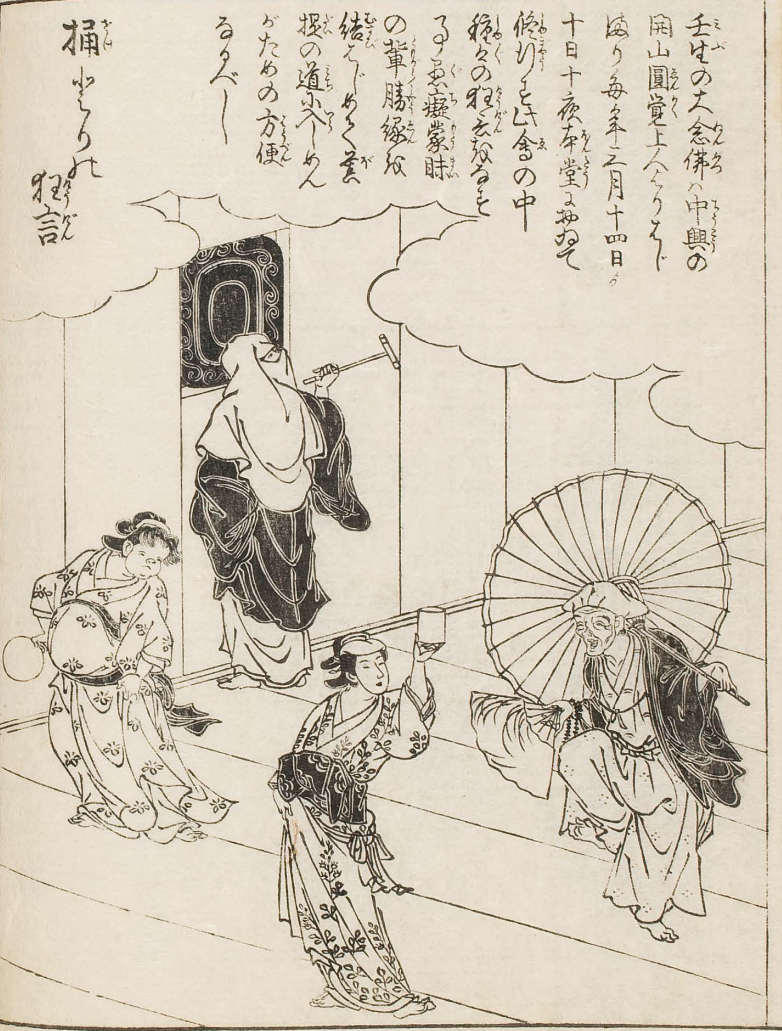 壬生の大念佛ハ中興の
開山圓覺上人よりはじ
まり毎年三月十四日より
十日十夜本堂におゐて
修行す此會の中
種々の狂言をなす
事愚癡蒙昧
の輩勝縁を
結ばしめて菩
提の道に入しめん
がための方便
なるべし
桶とりの
狂言